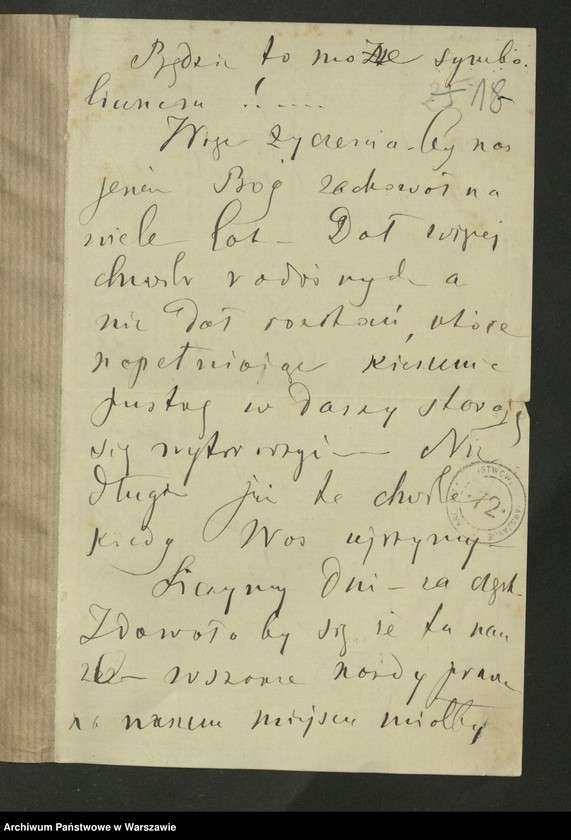 Będzie to może symbo-
licznem !.....
18
Więc życzenia - by nas
jeszcze Bóg zachował na
wiele lat - Dał więcej
chwil radosnych a
nie dał rozstań, które
napełniając kieszenie
pustkę w duszy starają
się wytworzyć — Nie
długo już te chwile
kiedy Was ujrzymy -
Liczymy dni - za
Zdawałoby się że ta nau
- wszakże każdy prawie
na naszem miejscu miałby
72
Archiwum Państwowe w Warszawie